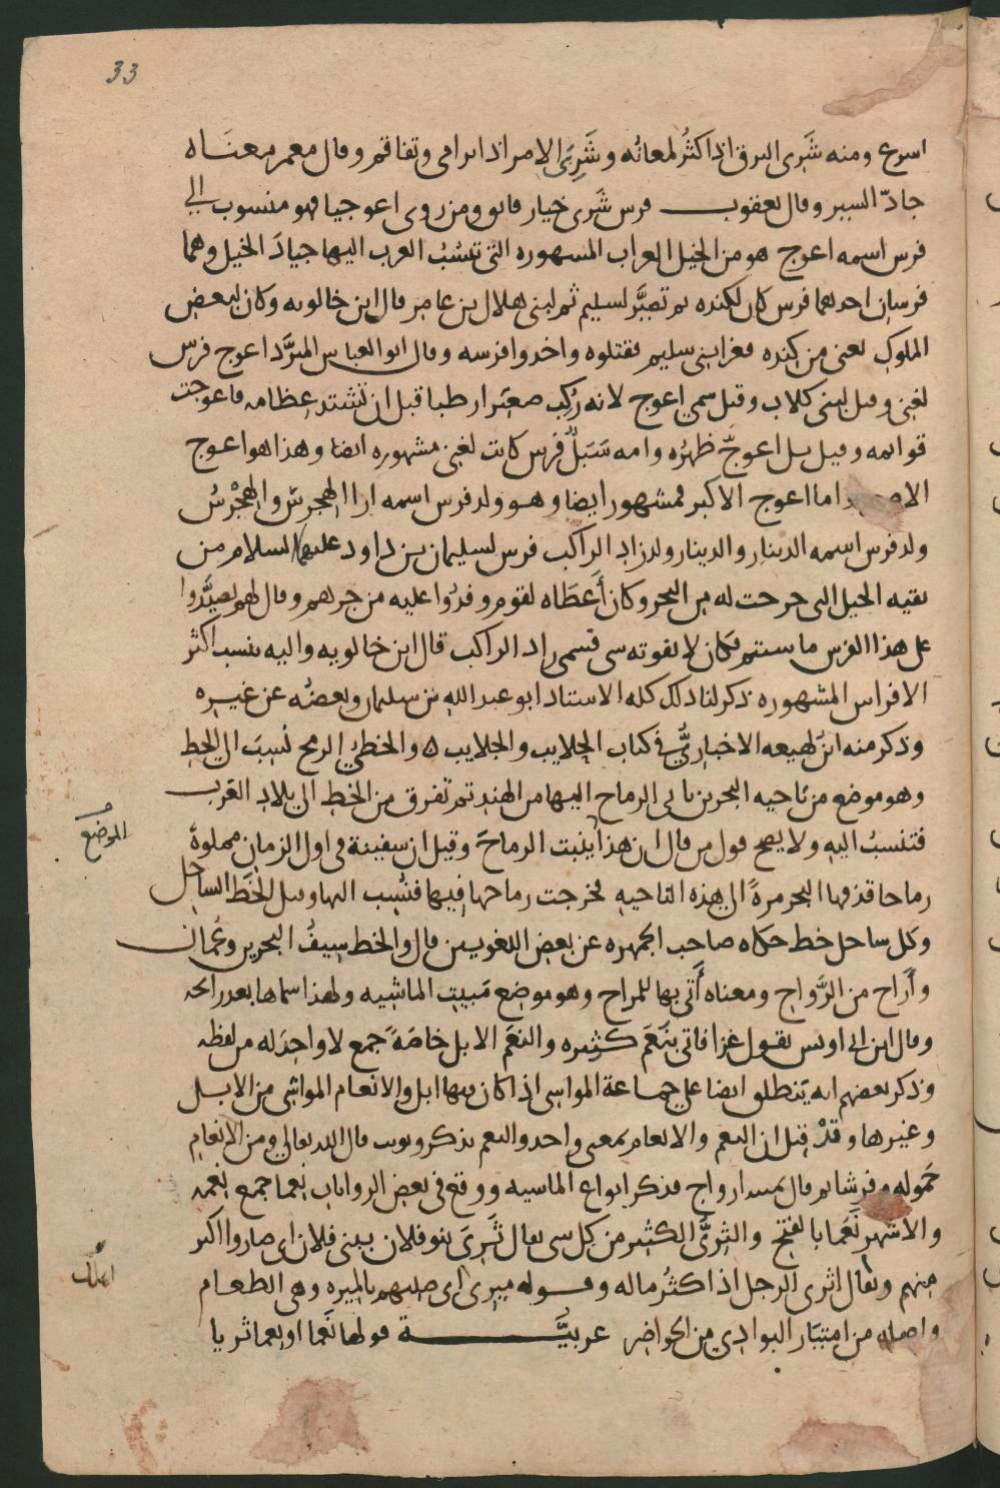 33
اسرع ومنه شَرِى البرق اذا كثُر لمعانُه وشَرِىَ الامر اذا ترامى وتفاقم وقال معمر معناه
جادّ السير وقال يعقوب فرس شَرِى خيار فائق ومن روى اعوجيا فهو منسوب الى
فرس اسمه اعوج هو من الخيل العراب المشهوره التى تنسُبُ العرب اليها جيادَ الخيل وهما
فرسان احدهما فرس كان لكنده ثم تصيَّر لسليم ثم لبنى هلال بن عامر قال ابن خالويه وكان لبعض
الملوك يعنى من كنده فغزا بنى سليم فقتلوه واخذوا فرسه وقال ابو العباس المبرَّد اعوج فرس
لغنى وقيل لبنى كلاب وقيل سمى اعوج لانه رُكب صغيرا رطبا قبل ان تشتد عظامه فاعوجت
قوائمه وقيل بل اعوجّ ظهرُه وامه سَبَلُ فرس كانت لغنى مشهوره ايضا وهذا هو اعوج
اما اعوج الاكبر فمشهور ايضا وهو ولد فرس اسمه الهجرس والهجْرسُ
ولد فرس اسمه الدينار والدينار ولد زاد الراكب فرس لسليمان بن داود عليهما السلام من
بقيه الخيل التى خرجت له من البحر وكان أَعطَاه لقوم وفدُوا عليه من جرهم وقال لهم تصيَّدوا
على هذا الفرس ما شئتم فكان لا يفوته شى فسمى زاد الراكب قال ابن خالويه واليه ينسب اكثر
الافراس المشهوره ذكر لنا ذلك كله الاستاد ابو عبد الله بن سليمان وبعضُه عن غيره
وذكر منه ابنُ لهيعه الاخبارىُّ فى كتاب الجلايب والجلايب ٥ والخطىُّ الرمح نُسِبَ الى الخط
وهو موضع من ناحيه البحرين تاتى الرماح اليها من الهند ثم تفرق من الخط الى بلاد العَرب
فتنسبُ اليه ولا يصح قول من قال ان هذا ينبت الرماحَ وقيل ان سفينة فى اول الزمان مملوةً
الموضع
رماحا قذفها البحر مرةً الى هذه الناحيه فخرجت رماحها فيها فنُسِب اليها وقيل الخَط الساحل
وكل ساحل خط حكاه صاحب الجمهره عن بعض اللغويين قال والخط سِيفُ البحرين وعُمان
وأَراح من الرَّواح ومعناه أَتَى بها للمراح وهو موضع مَبيت الماشيه ولهذا سماها بعد رائحه
وقال ابن ابى اويس يقول غزا فاتى بنَعَم كثيره والنعَم الابل خاصَةً جمع لا واحد له من لفظه
وذكر بعضهم انه ينطلق ايضا على جماعة المواشى اذا كان فيها ابل والانعام المواشى من الابل
وغيرها وقَدْ قيل ان النعم والانعام بمعنى واحد والنعم يذكر ويونث قال الله تعالى ومن الانعام
حَموله وفرشا ثم قال ثمنيه ازواج فذكر انواع الماشيه ووقع فى بعض الروايات نِعما جمع نعمه
والاشهر نَعَما بالفتح والثرىُّ الكثير من كل شى يقال ثَرِىَ بنو فلان ببنى فلان اى صاروا اكثر
منهم ويقال اثرى الرجل اذا كثُر ماله وقوله ميرى اى صليهم بالميره وهى الطعام
اهلك
واصله من امتيار البوادى من الحواضر عربيَّة قولها نَعَما او نِعما ثريا